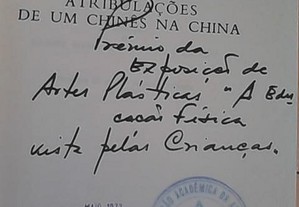 ATRIBULAÇÕES
DE UM CHINÊS NA CHINA
Prémio da
Exposição de
Artes Plásticas, "A Edu
cação Física
vista pelas Crianças.
MAIO 1977
ACADÉMICA DA